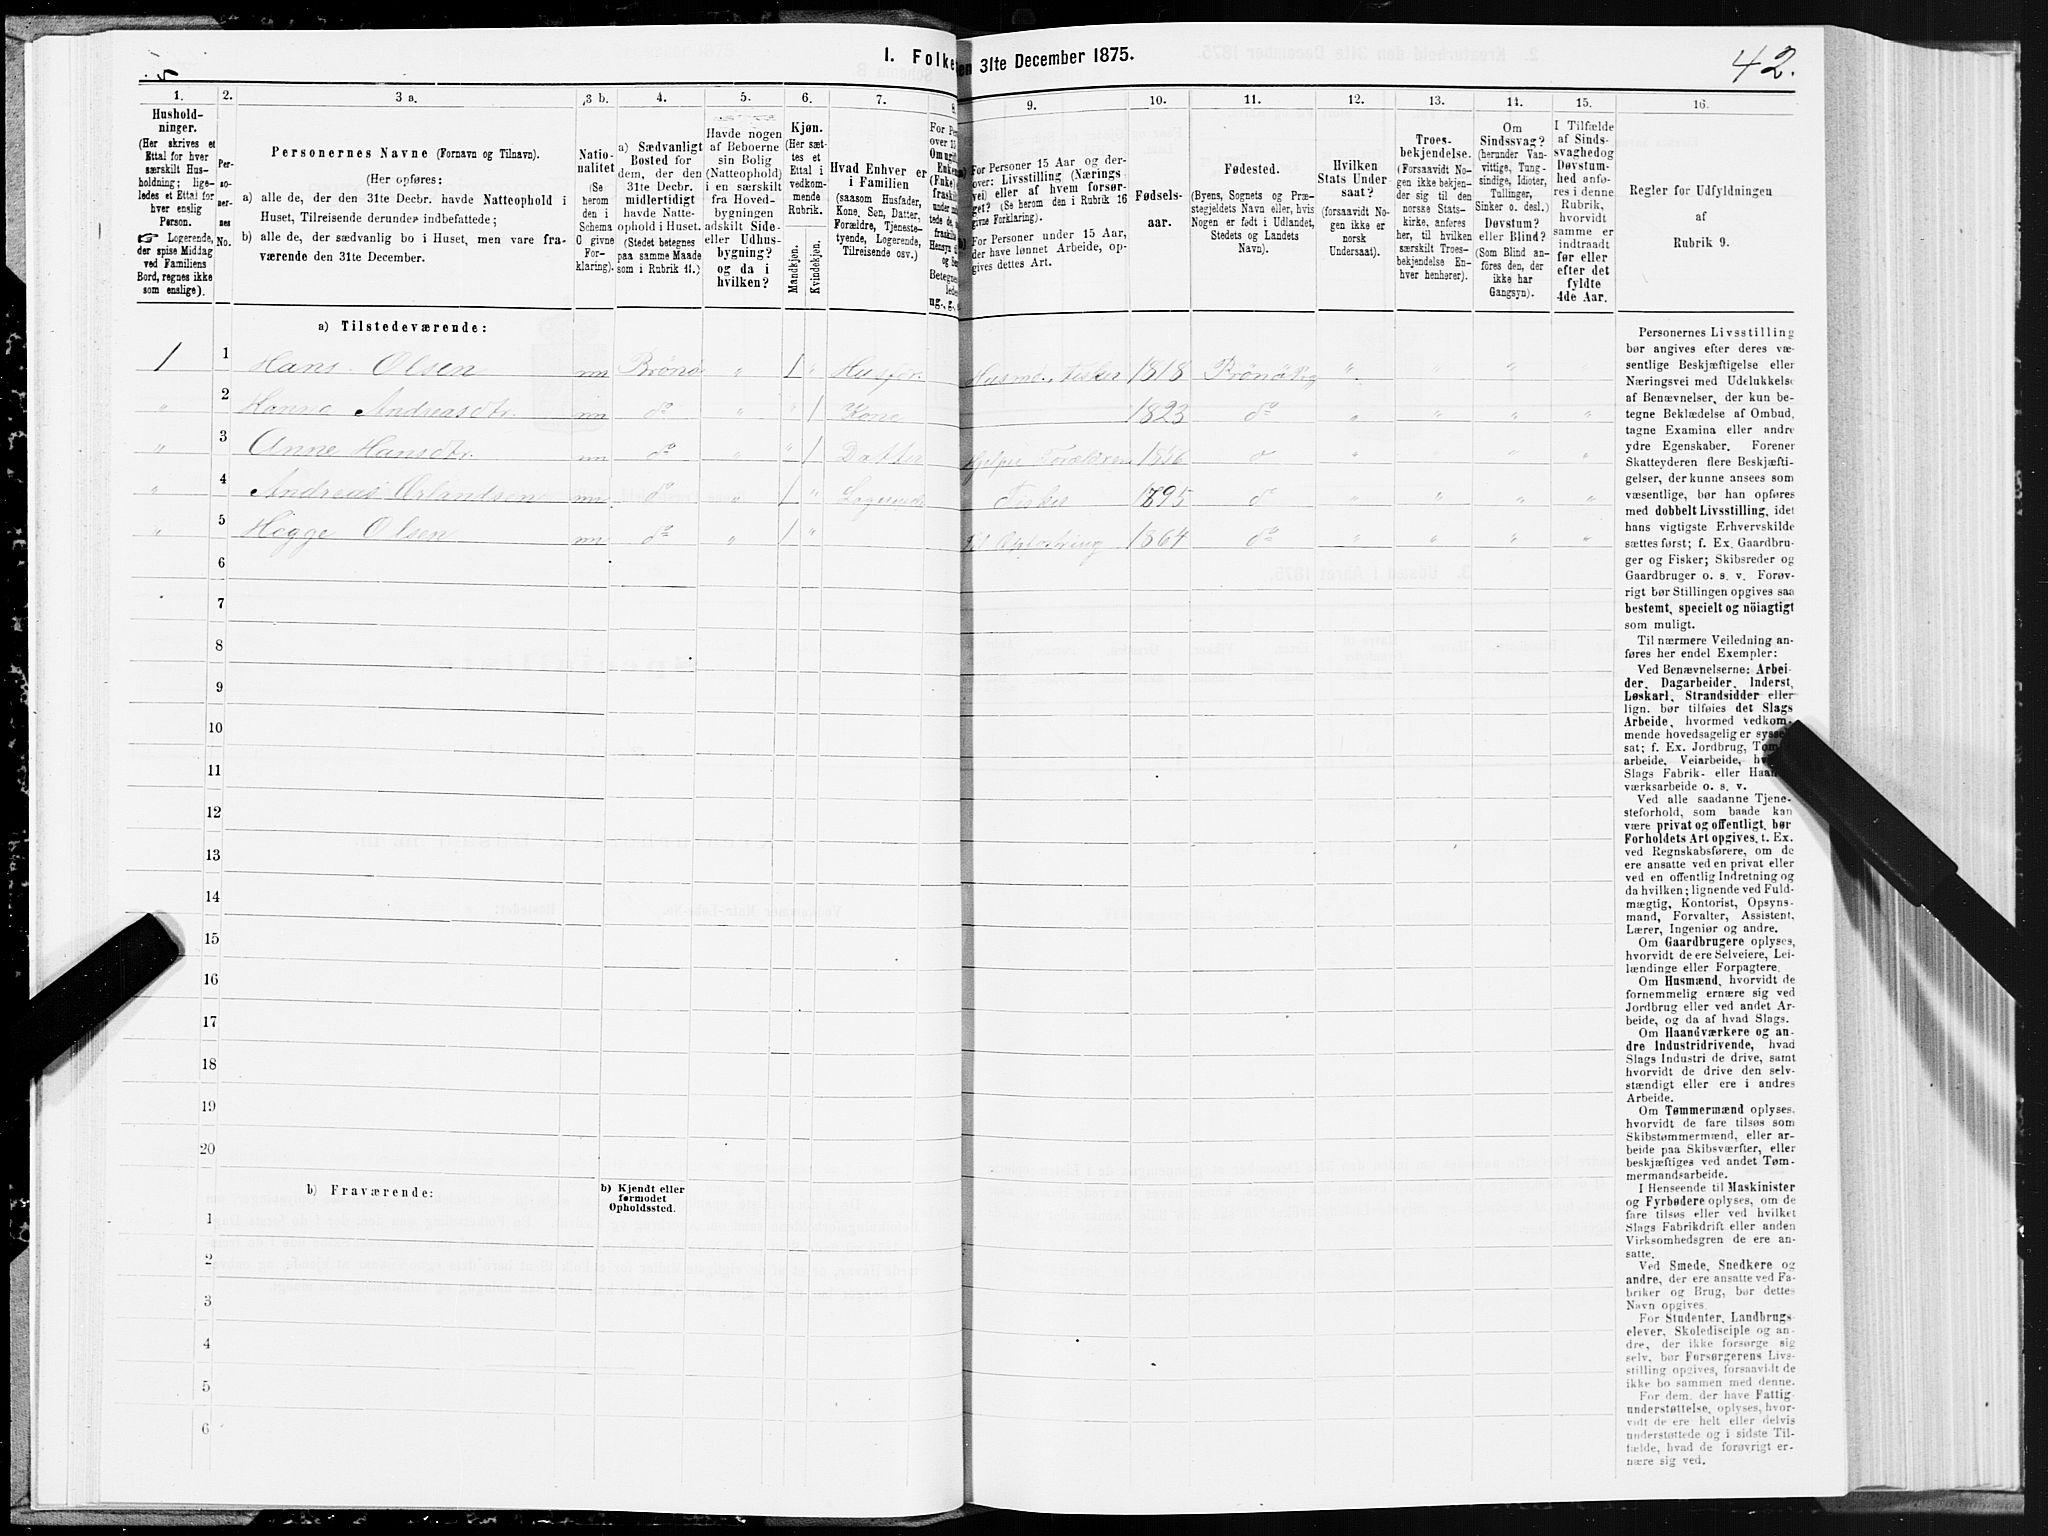 5
I. Folke
en 31te December 1875.
42.
1.
Hushold-
ninger.
(Her skrives et
Ettal for hver
særskilt Hus-
holdning; lige-
ledes et Ettal for
hver enslig
Person.
Logerende,
der spise Middag
ved Familiens
Bord, regnes ikke
som enslige).
2.
Per-
so-
ner-
nes
No.
3 a.
Personernes Navne (Fornavn og Tilnavn).
(Her opføres:
a) alle de, der den 31te Decbr. havde Natteophold i
Huset, Tilreisende derunder indbefattede;
b) alle de, der sædvanlig bo i Huset, men vare fra-
værende den 31te December.
3 b.
Natio-
nalitet
(Se
herom
den i
Schema
C givne
For-
klaring).
4.
a) Sædvanligt
Bosted for
dem, der den
31te Decbr.
midlertidigt
havde Natte-
ophold i Huset.
(Stedet betegnes
paa samme Maade
som i Rubrik 11.)
5.
Havde nogen
af Beboerne
sin Bolig
(Natteophold)
i en særskilt
fra Hoved-
bygningen
adskilt Side-
eller Udhus-
bygning?
og da i
hvilken?
6.
Kjøn.
(Her sæt-
tes et
Ettal i
vedkom-
mende
Rubrik.
Mandkjøn.
Kvindekjøn.
7.
Hvad Enhver er
i Familien
(saasom Husfader,
Kone, Søn, Datter,
Forældre, Tjeneste-
tyende, Logerende,
Tilreisende osv.)
8
For Pe
over 15
Om ugift
Enken
(Fnk
fraskil
9.
For Personer 15 Aar og der-
over: Livsstilling (Nærings
vei) eller af hvem forsør-
get? (Se herom den i Rubrik 16
givne Forklaring).
For Personer under 15 Aar,
der have lønnet Arbeide, op-
gives dettes Art.
10.
Fødsels-
aar.
11.
Fødested.
(Byens, Sognets og Præ-
stegjeldets Navn eller, hvis
Nogen er født i Udlandet,
Stedets og Landets
Navn).
12.
Hvilken
Stats Under
saat?
(forsaavidt No-
gen ikke er
norsk
Undersaat).
13.
Troes-
bekjendelse.
(Forsaavidt No-
gen ikke bekjen-
der sig til den
norske Stats-
kirke, anføres
her, til hvilken
særskilt Troes-
bekjendelse En-
hver henhører).
14.
Om
Sindssvag?
(herunder Van-
vittige, Tung-
sindige, Idioter,
Tullinger,
Sinker o. desl.)
Døvstum?
eller Blind?
(Som Blind an-
føres den, der
ikke har
Gangsyn).
15.
I Tilfælde
af Sinds-
svaghed og
Døvstum-
hed anfø-
res i denne
Rubrik,
hvorvidt
samme er
indtraadt
før eller
efter det
fyldte
4de Aar.
16.
Regler for Udfyldningen
af
Rubrik 9.
a) Tilstedeværende:
1 1 Hans Olsen nn Brönö " 1 " Husfar. Husmd. Fisker 1818 Brönö Pg " " " "
" 2 Hanne Andreasdtr. nn do " " 1 Kone 1823 do " " " "
" 3 Anne Hansdtr. nn do " 1 Datter Hjelper Forældrene 1856 do " " " "
" 4 Andreas Orlandsen nn do " 1 " Logerende Fisker 1895 do " " " "
" 5 Hogge Olsen nn do " 1 " til Opfostring 1864 do " " " "
6
7
8
9
10
11
12
13
14
15
16
17
18
19
20
b) Fraværende:
b) Kjendt eller
formodet
Opholdssted.
1
2
3
4
5
6
Personernes Livsstilling
bør angives efter deres væ-
sentlige Beskjæftigelse eller
Næringsvei med Udelukkelse
af Benævnelser, der kun be-
tegne Beklædelse af Ombud,
tagne Examina eller andre
ydre Egenskaber. Forener
Skatteyderen flere Beskjæfti-
gelser, der kunne ansees som
væsentlige, bør han opføres
med dobbelt Livsstilling, idet
hans vigtigste Erhvervskilde
sættes først; f. Ex. Gaardbru-
ger og Fisker; Skibsreder og
Gaardbruger o. s. v. Forøv-
rigt bør Stillingen opgives saa
bestemt, specielt og nöiagtigt
som muligt.
Til nærmere Veiledning an-
føres her endel Exempler:
Ved Benævnelserne: Arbei-
der, Dagarbeider, Inderst,
Løskarl, Strandsidder eller
lign. bør tilføies det Slags
Arbeide, hvormed vedkom-
mende hovedsagelig er syssel
sat; f. Ex. Jordbrug, Tøm
arbeide, Veiarbeide, hv
Slags Fabrik- eller Haan
værksarbeide o. s. v.
Ved alle saadanne Tjene-
steforhold, som baade kan
være privat og offentligt, bør
Forholdets Art opgives, t. Ex.
ved Regnskabsførere, om de
ere ansatte ved en privat eller
ved en offentlig Indretning og
da hvilken; lignende ved Fuld-
mægtig, Kontorist, Opsyns-
mand, Forvalter, Assistent,
Lærer, Ingeniør og andre.
Om Gaardbrugere oplyses,
hvorvidt de ere Selveiere, Lei-
lændinge eller Forpagtere.
Om Husmænd, hvorvidt de
fornemmelig ernære sig ved
Jordbrug eller ved andet Ar-
beide, og da af hvad Slags.
Om Haandværkere og an-
dre Industridrivende, hvad
Slags Industri de drive, samt
hvorvidt de drive den selv-
stændigt eller ere i andres
Arbeide.
Om Tømmermænd oplyses,
hvorvidt de fare tilsøs som
Skibstømmermænd, eller ar-
beide paa Skibsværfter, eller
beskjæftiges ved andet Tøm-
mermandsarbeide.
I Henseende til Maskinister
og Fyrbødere oplyses, om de
fare tilsøs eller ved hvilket
Slags Fabrikdrift eller anden
Virksomhedsgren de ere an-
satte.
Ved Smede, Snedkere og
andre, der ere ansatte ved Fa-
briker og Brug, bør dettes
Navn opgives.
For Studenter, Landbrugs-
elever, Skoledisciple og an-
dre, der ikke forsørge sig
selv, bør Forsørgerens Livs-
stilling opgives, forsaavidt de
ikke bo sammen med denne.
For dem, der have Fattig-
understøttelse, oplyses, hvor-
vidt de ere helt eller delvis
understøttede og i sidste Til-
fælde, hvad de forøvrigt er-
nære sig ved.